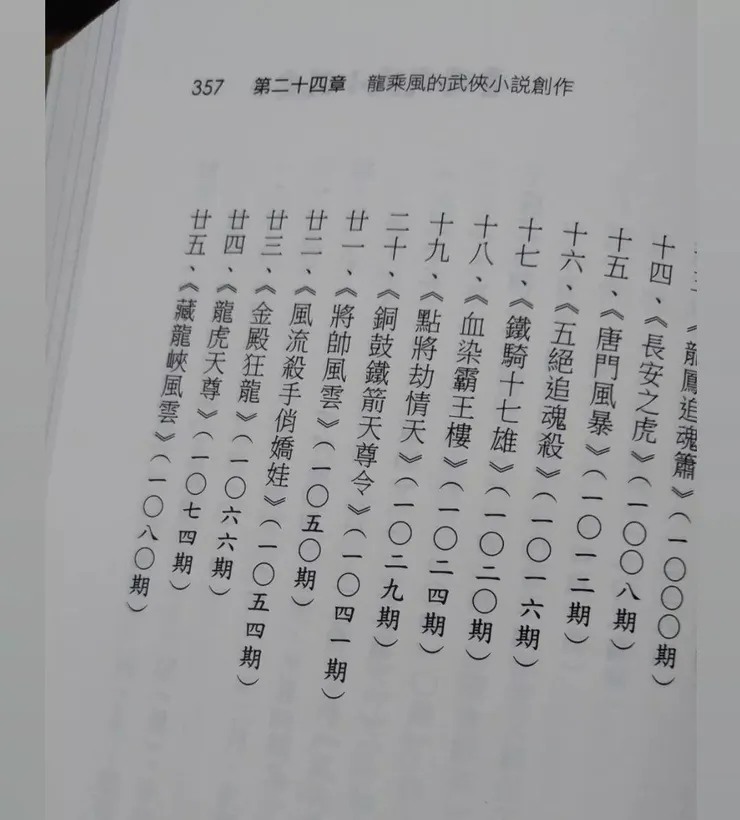 357 第二十四章 龍乘風的武俠小說創作
十三、《龍鳳追魂簫》(一〇〇〇期)
十四、《長安之虎》(一〇〇八期)
十五、《唐門風暴》(一〇一二期)
十六、《五絕追魂殺》(一〇一六期)
十七、《鐵騎十七雄》(一〇二〇期)
十八、《血染霸王樓》(一〇二四期)
十九、《點將劫情天》(一〇二九期)
二十、《銅鼓鐵箭天尊令》(一〇四一期)
廿一、《將帥風雲》(一〇五〇期)
廿二、《風流殺手俏嬌娃》(一〇五四期)
廿三、《金殿狂龍》(一〇六六期)
廿四、《龍虎天尊》(一〇七四期)
廿五、《藏龍峽風雲》(一〇八〇期)